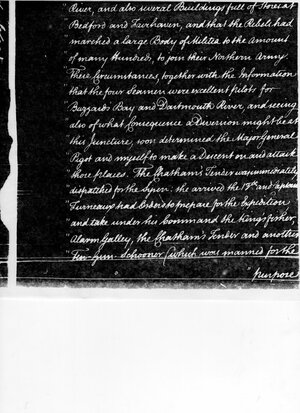 " River, and also several Buildings full of Stores at
" Bedford and Fairhaven, and that the Rebels had
" marched a large Body of Militia to the Amount
" of many Hundreds, to join their Northern Army.
" These Circumstances, together with the Information
" that the four Seamen were excellent pilots for
" Buzzards Bay and Dartmouth River, and seeing
" also of what Consequence a Diversion might be at
" this Juncture, soon determined the Major General
" Pigot and myself to make a Descent on and attack
" those places. The Chatham's Tender was immediately
" dispatched for the Syren: she arrived the 13th and Captain
" Furneaux had Orders to prepare for the Expedition
" and take under his Command the Kingsfisher,
" Alarm Galley, the Chatham's Tender and another
" Gun-Schooner (which was manned for the
" purpose